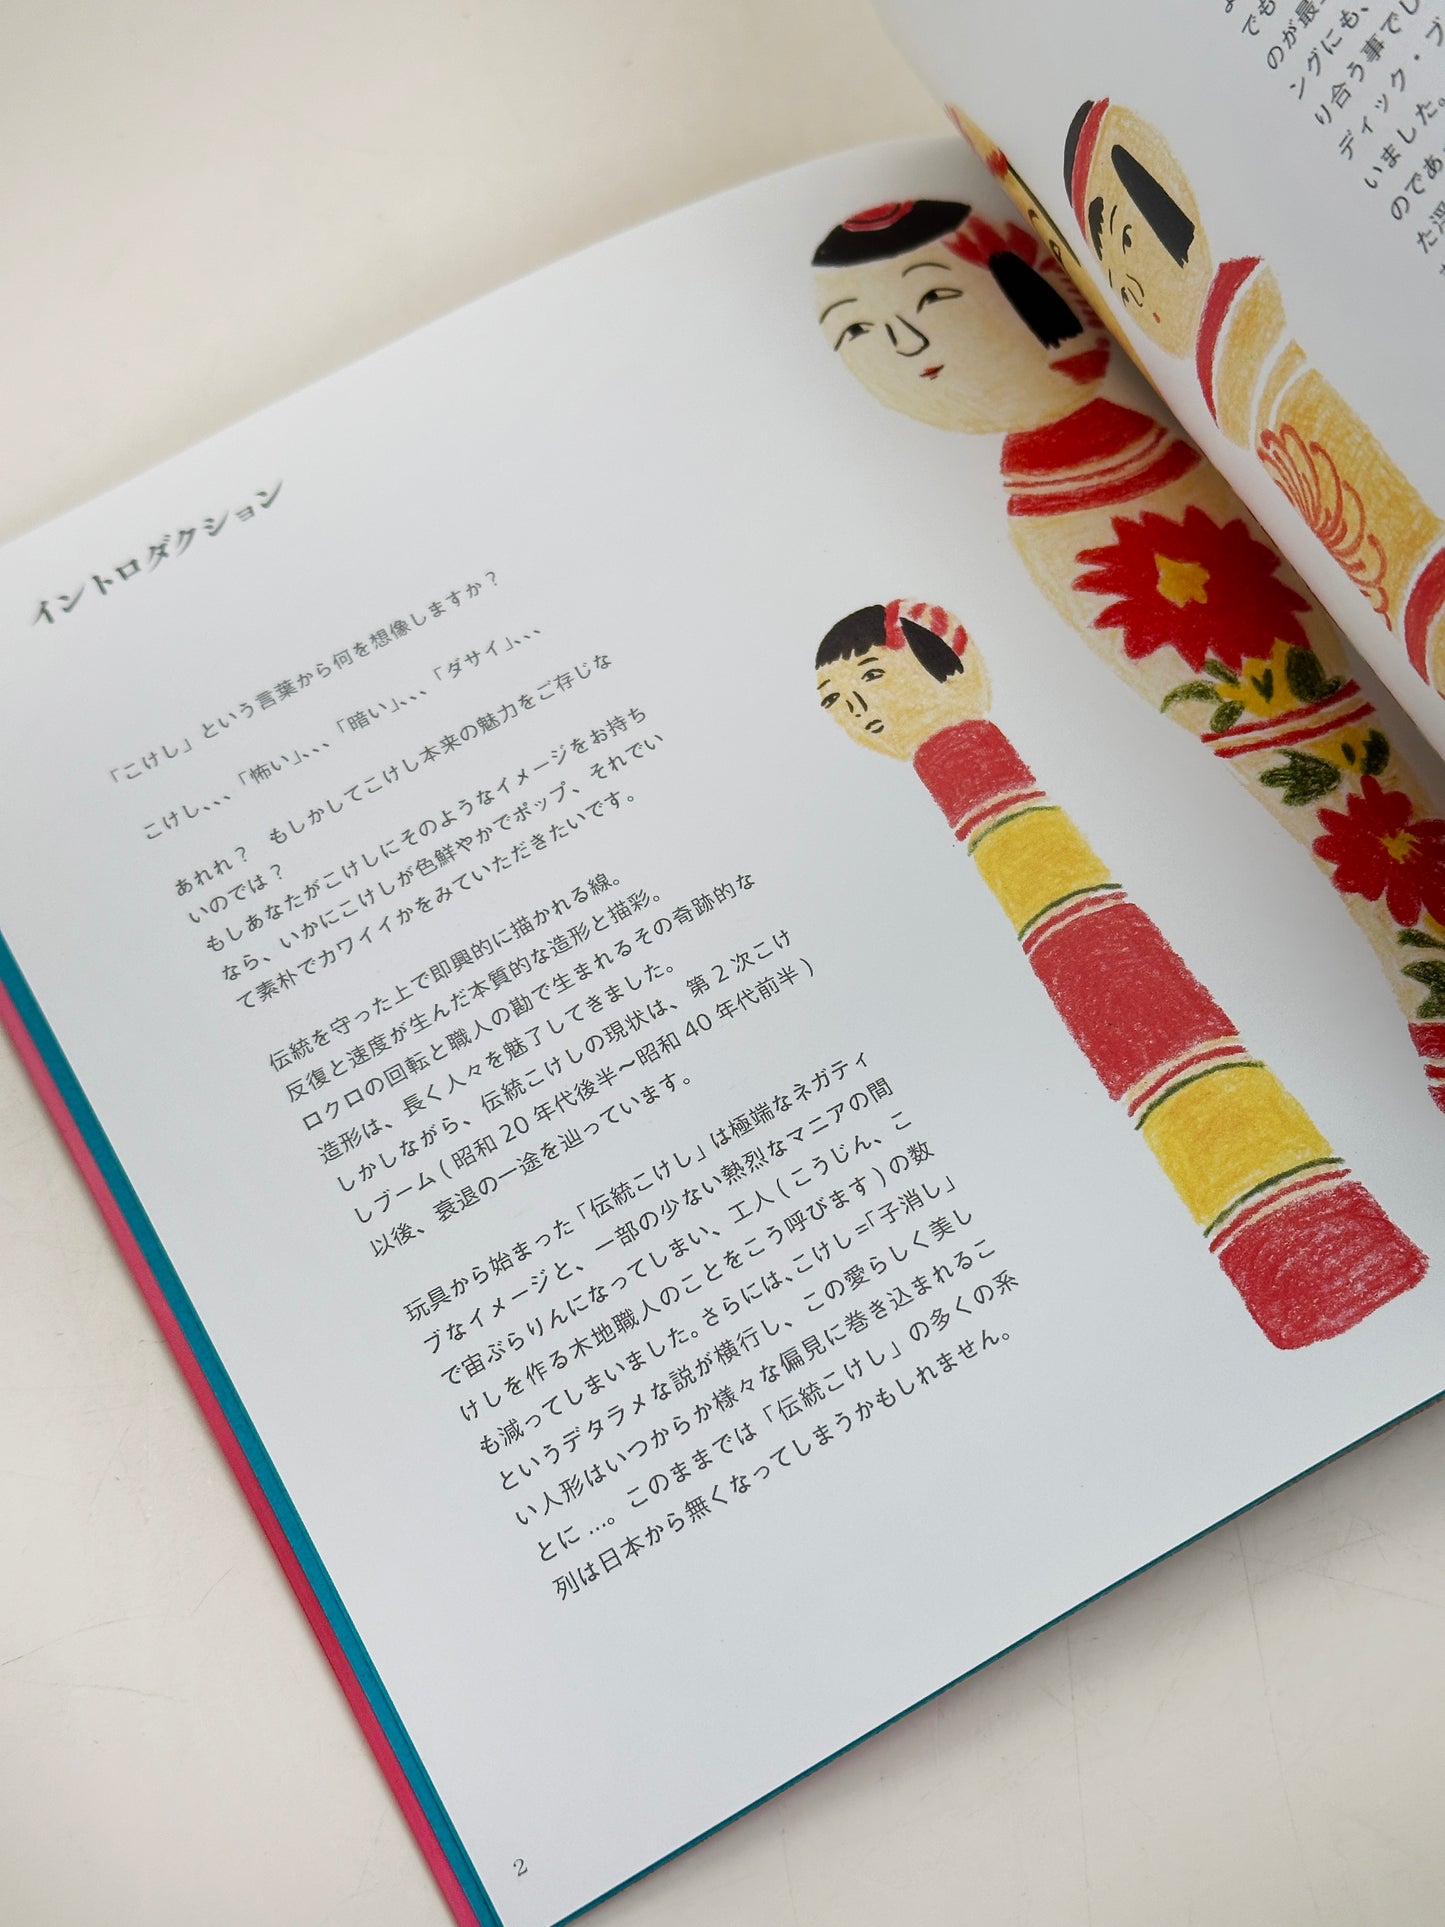 イントロダクション
「こけし」という言葉から何を想像しますか？
こけし、、、「怖い」、、、「暗い」、、、「ダサイ」、、、
あれれ？　もしかしてこけし本来の魅力をご存じな
いのでは？
もしあなたがこけしにそのようなイメージをお持ち
なら、いかにこけしが色鮮やかでポップ、それでい
て素朴でカワイイかをみていただきたいです。
伝統を守った上で即興的に描かれる線。
反復と速度が生んだ本質的な造形と描彩。
ロクロの回転と職人の勘で生まれるその奇跡的な
造形は、長く人々を魅了してきました。
しかしながら、伝統こけしの現状は、第２次こけ
しブーム(昭和20年代後半〜昭和40年代前半)
以後、衰退の一途を辿っています。
玩具から始まった「伝統こけし」は極端なネガティ
ブなイメージと、一部の少ない熱烈なマニアの間
で宙ぶらりんになってしまい、工人(こうじん、こ
けしを作る木地職人のことをこう呼びます)の数
も減ってしまいました。さらには、こけし=「子消し」
というデタラメな説が横行し、この愛らしく美し
い人形はいつからか様々な偏見に巻き込まれるこ
とに…。このままでは「伝統こけし」の多くの系
列は日本から無くなってしまうかもしれません。
2
でも
のが最
ングにも、
り合う事でし
ディック・ブ
いました。
のであ
た浮